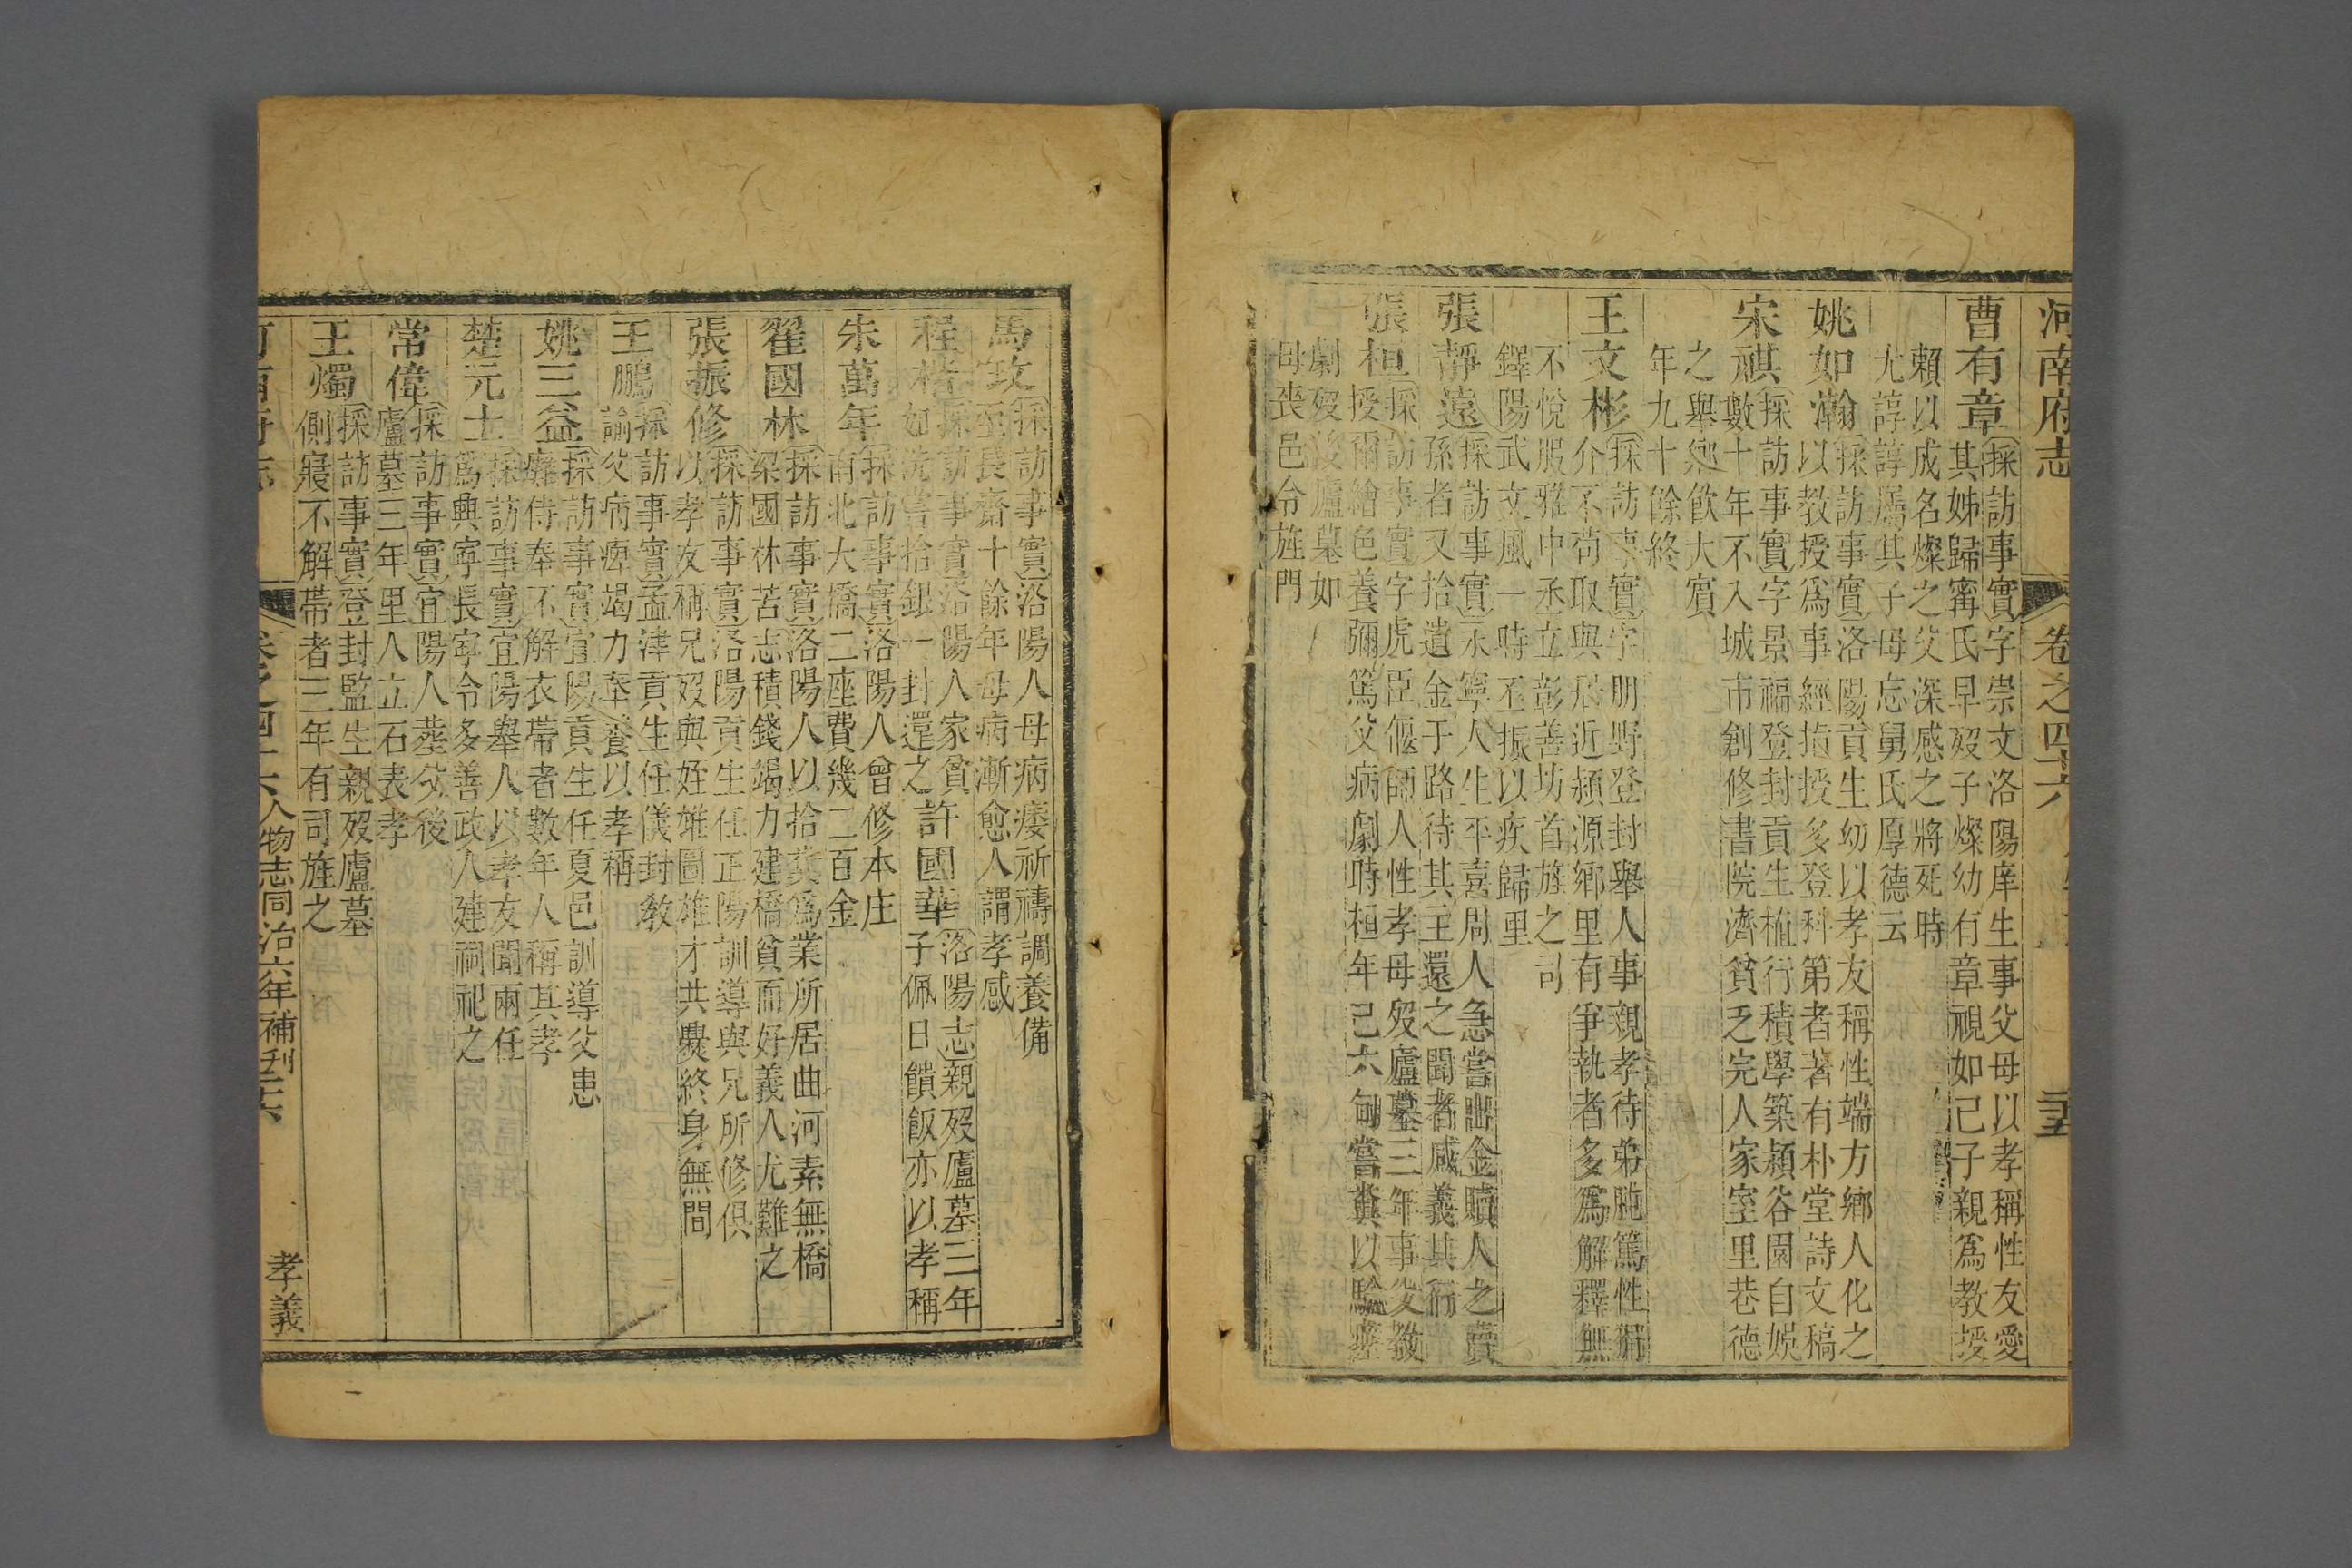 河南府志 卷之四十六 三十五
曹有章
採訪事實字崇文洛陽庠生事父母以孝稱性友愛
其姊歸甯氏早歿子燦幼有章視如己子親爲教授
賴以成名燦之父深感之將死時
尤諄諄屬其子母忘舅氏厚德云
姚如瀚
採訪事實洛陽貢生幼以孝友稱性端方鄉人化之
以教授爲事經指授多登科第者著有朴堂詩文稿
宋祺
採訪事實字景福登封貢生植行積學築潁谷園自娛
數十年不入城市創修書院濟貧乏完人家室里巷德
之舉鄉飲大賓
年九十餘終
王文彬
採訪事實字朋野登封舉人事親孝待弟
介不苟取與居近潁源鄉里有爭執者多爲解釋無
不悅服雅中丞立彰善坊首旌之司
鐸陽武文風一時丕振以疾歸里
張靜遠
採訪事實永寧人生平喜周人急嘗出金贖人之賣
孫者又拾遺金于路待其主還之聞者感義其行
張桓
採訪事實字虎臣偃師人性孝母歿廬墓三年事父
授爾繪色養彌篤父病劇時桓年已六旬嘗糞以驗
劇歿後廬墓如
母喪邑令旌門
馬攻
採訪事實洛陽人母病痿祈禱調養備
至長齋十餘年母病漸愈人謂孝感
程楷
採訪事實洛陽人家貧
如洗嘗拾銀一封還之
許國華
洛陽志親歿廬墓三年
子佩日饋飯亦以孝稱
朱萬年
採訪事實洛陽人曾修本庄
南北大橋二座費幾二百金
翟國林
採訪事實洛陽人以拾糞爲業所居曲河素無橋
梁國林苦志積錢竭力建橋貧而好義人尤難之
張振修
採訪事實洛陽貢生任正陽訓導與兄所修俱
以孝友稱兄歿與姪雄圖雄才共爨終身無間
王鵬
採訪事實孟津貢生任儀封教
諭父病痺竭力奉養以孝稱
姚三益
採訪事實宜陽貢生任夏邑訓導父患
癱侍奉不解衣帶者數年人稱其孝
楚元士
採訪事實宜陽舉人以孝友聞兩任
爲興寧長寧令多善政人建祠祀之
常偉
採訪事實宜陽人葬父後
廬墓三年里人立石表孝
王燭
採訪事實登封監生親歿廬墓
側寢不解帶者三年有司旌之
河南府志 卷之四十六 人物志同治六年補刊 三十六 孝義